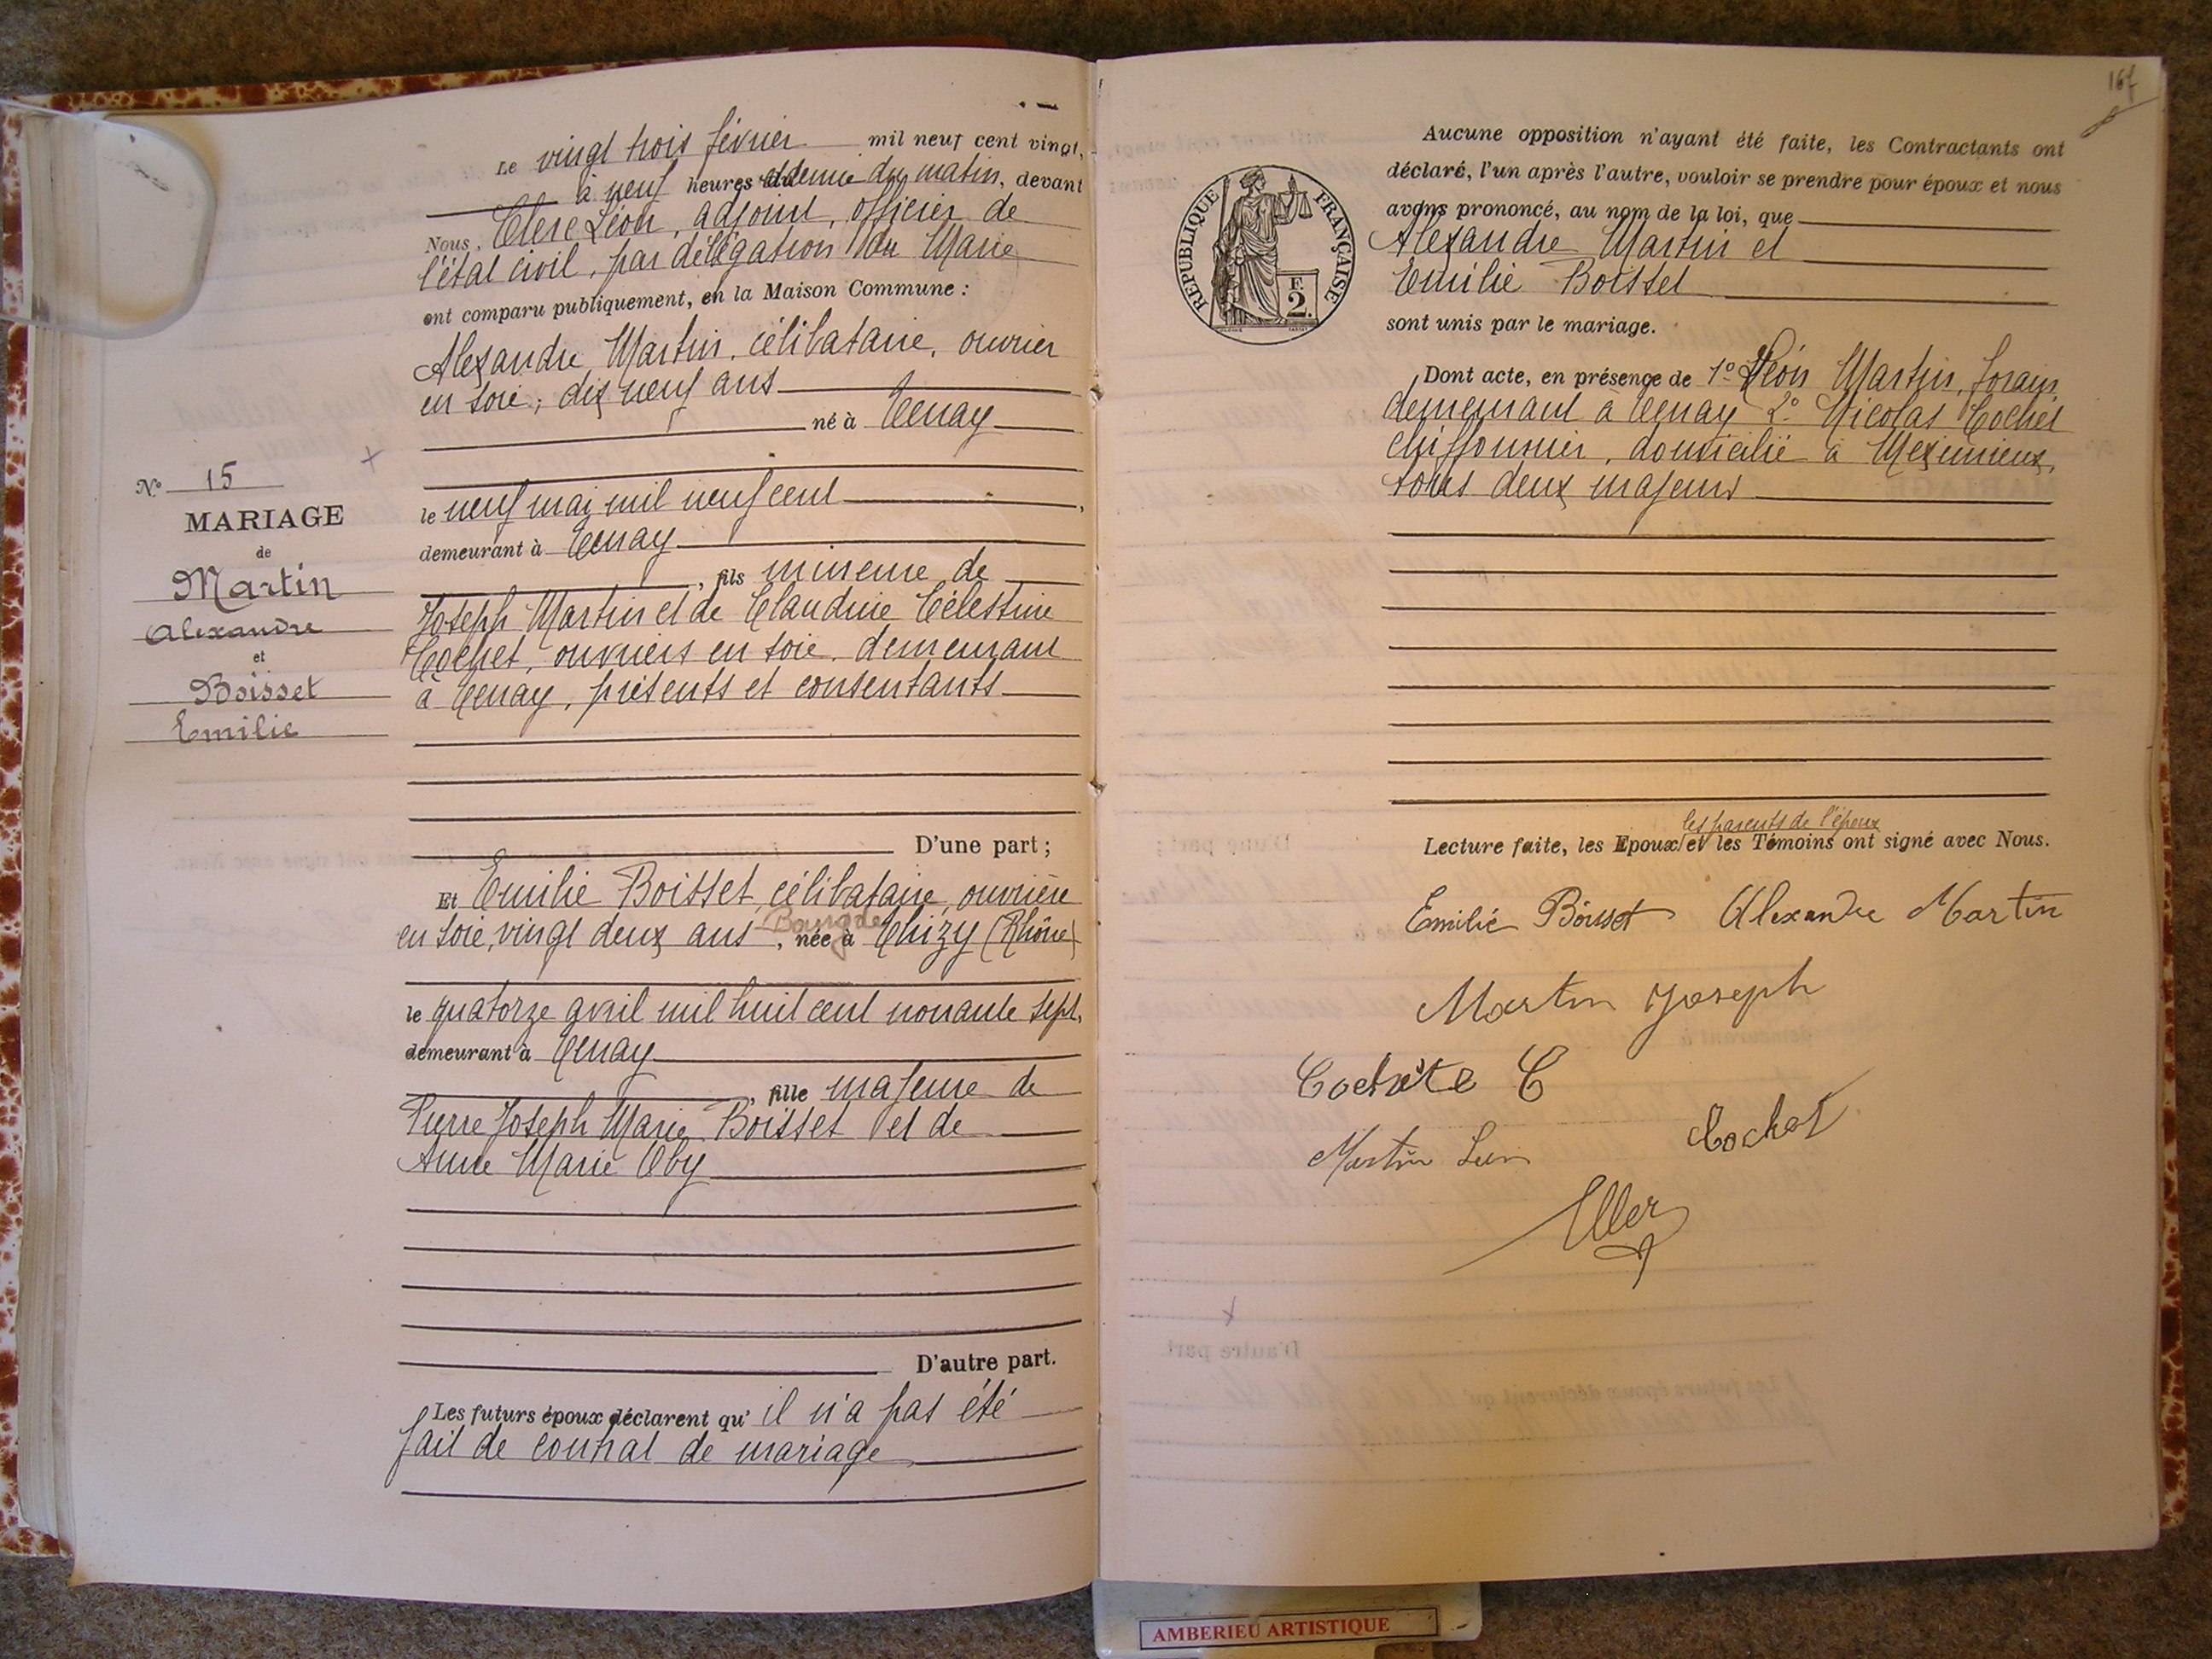 Le vingt trois février mil neuf cent vingt,
à neuf heures et demie du matin, devant
Nous, Clerc Léon, adjoint, officier de
l'état civil, par délégation du Maire
ont comparu publiquement, en la Maison Commune :
Alexandre Martin, célibataire, ouvrier
en soie, dix neuf ans
né à Tenay
le neuf mai mil neuf cent,
demeurant à Tenay
, fils mineur de
Joseph Martin et de Claudine Célestine
Cochet, ouvriers en soie, demeurant
à Tenay, présents et consentants
D'une part ;
Et Emilie Boisset, célibataire, ouvrière
Bourg de
en soie, vingt deux ans, née à Thizy (Rhône)
le quatorze avril mil huit cent nonante sept,
demeurant à Tenay
, fille majeure de
Pierre Joseph Marie Boisset et de
Anne Marie
D'autre part.
Les futurs époux déclarent qu' il n'a pas été
fait de contrat de mariage
N° 15
MARIAGE
de
Martin
Alexandre
et
Boisset
Emilie
167
Aucune opposition n'ayant été faite, les Contractants ont
déclaré, l'un après l'autre, vouloir se prendre pour époux et nous
avons prononcé, au nom de la loi, que
Alexandre Martin et
Emilie Boisset
sont unis par le mariage.
RÉPUBLIQUE FRANÇAISE
F.
2.
Dont acte, en présence de 1° Léon Martin, forain,
demeurant à Tenay 2° Nicolas Cochet
chiffonnier, domicilié à Meximieux,
tous deux majeurs
les parents de l'époux
Lecture faite, les Epoux et les Témoins ont signé avec Nous.
Emilie Boisset Alexandre Martin
Martin Joseph
C
Cochet
Martin Léon
AMBERIEU ARTISTIQUE